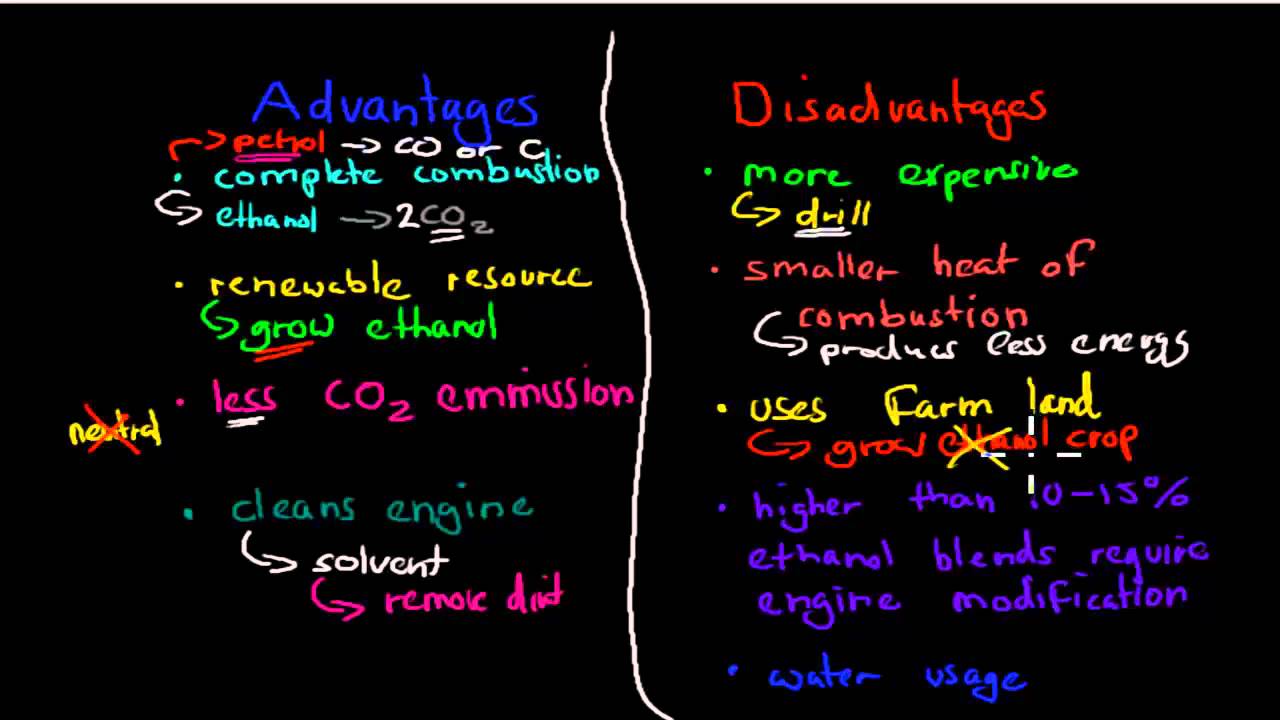 Advantages
petrol → CO or C
• complete combustion
ethanol → 2CO₂
• renewable resource
grow ethanol
• less CO₂ emmission
neutral
• cleans engine
solvent
remove dirt
Disadvantages
• more expensive
drill
• smaller heat of
combustion
produces less energy
• uses Farm land
grow ethanol crop
• higher than 10-15%
ethanol blends require
engine modification
• water usage